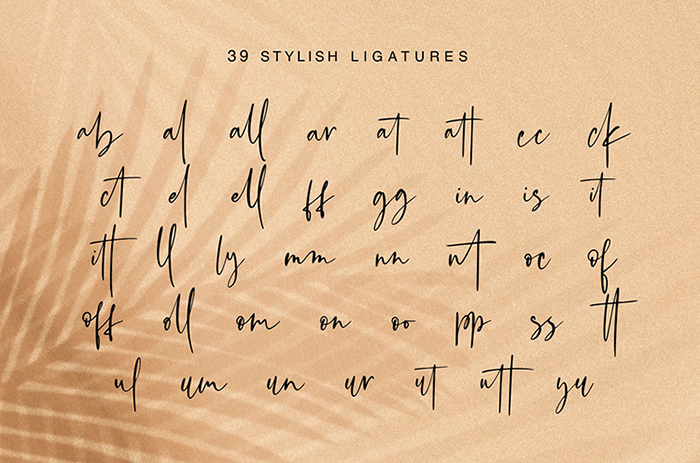 39 STYLISH LIGATURES
ab al all ar at att cc ck
ct el ell ff gg in is it
itt ll ly mm nn nt oc of
off oll om on oo pp ss tt
ul um un ur ut utt yu